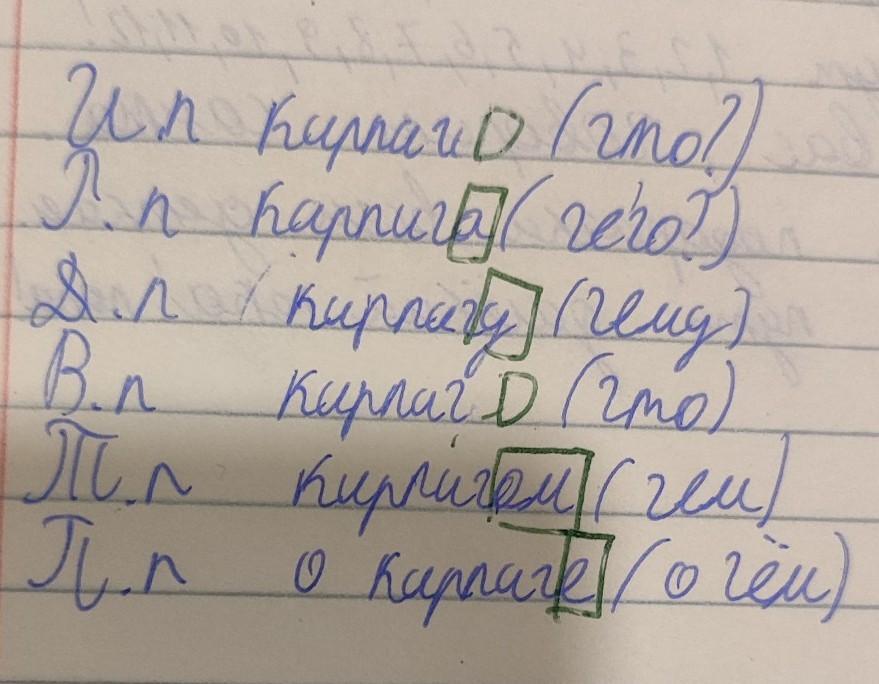 И.п кирпич (что?)
Р.п кирпича (чего?)
Д.п кирпичу (чему)
В.п кирпич (что)
Т.п кирпичом (чем)
П.п о кирпиче (о чём)